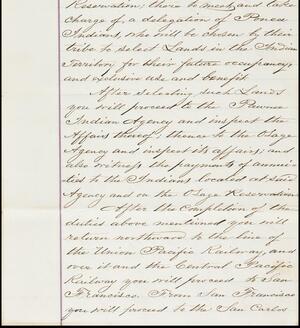 Reservation; there to meet and take
charge of a delegation of Ponca
Indians, who will be chosen by their
tribe to select Lands in the Indian
Territory for their future occupancy,
and exclusive use and benefit.
After selecting such Lands
you will proceed to the Pawnee
Indian Agency and inspect the
Affairs thereof; thence to the Osage
Agency and inspect its affairs; and
also witness the payments of annui-
ties to the Indians located at said
Agency and on the Osage Reservation.
After the Completion of the
duties above mentioned you will
return northward to the line of
the Union Pacific Railway, and
over it and the Central Pacific
Railway you will proceed to San
Francisco. From San Francisco
you will proceed to the San Carlos